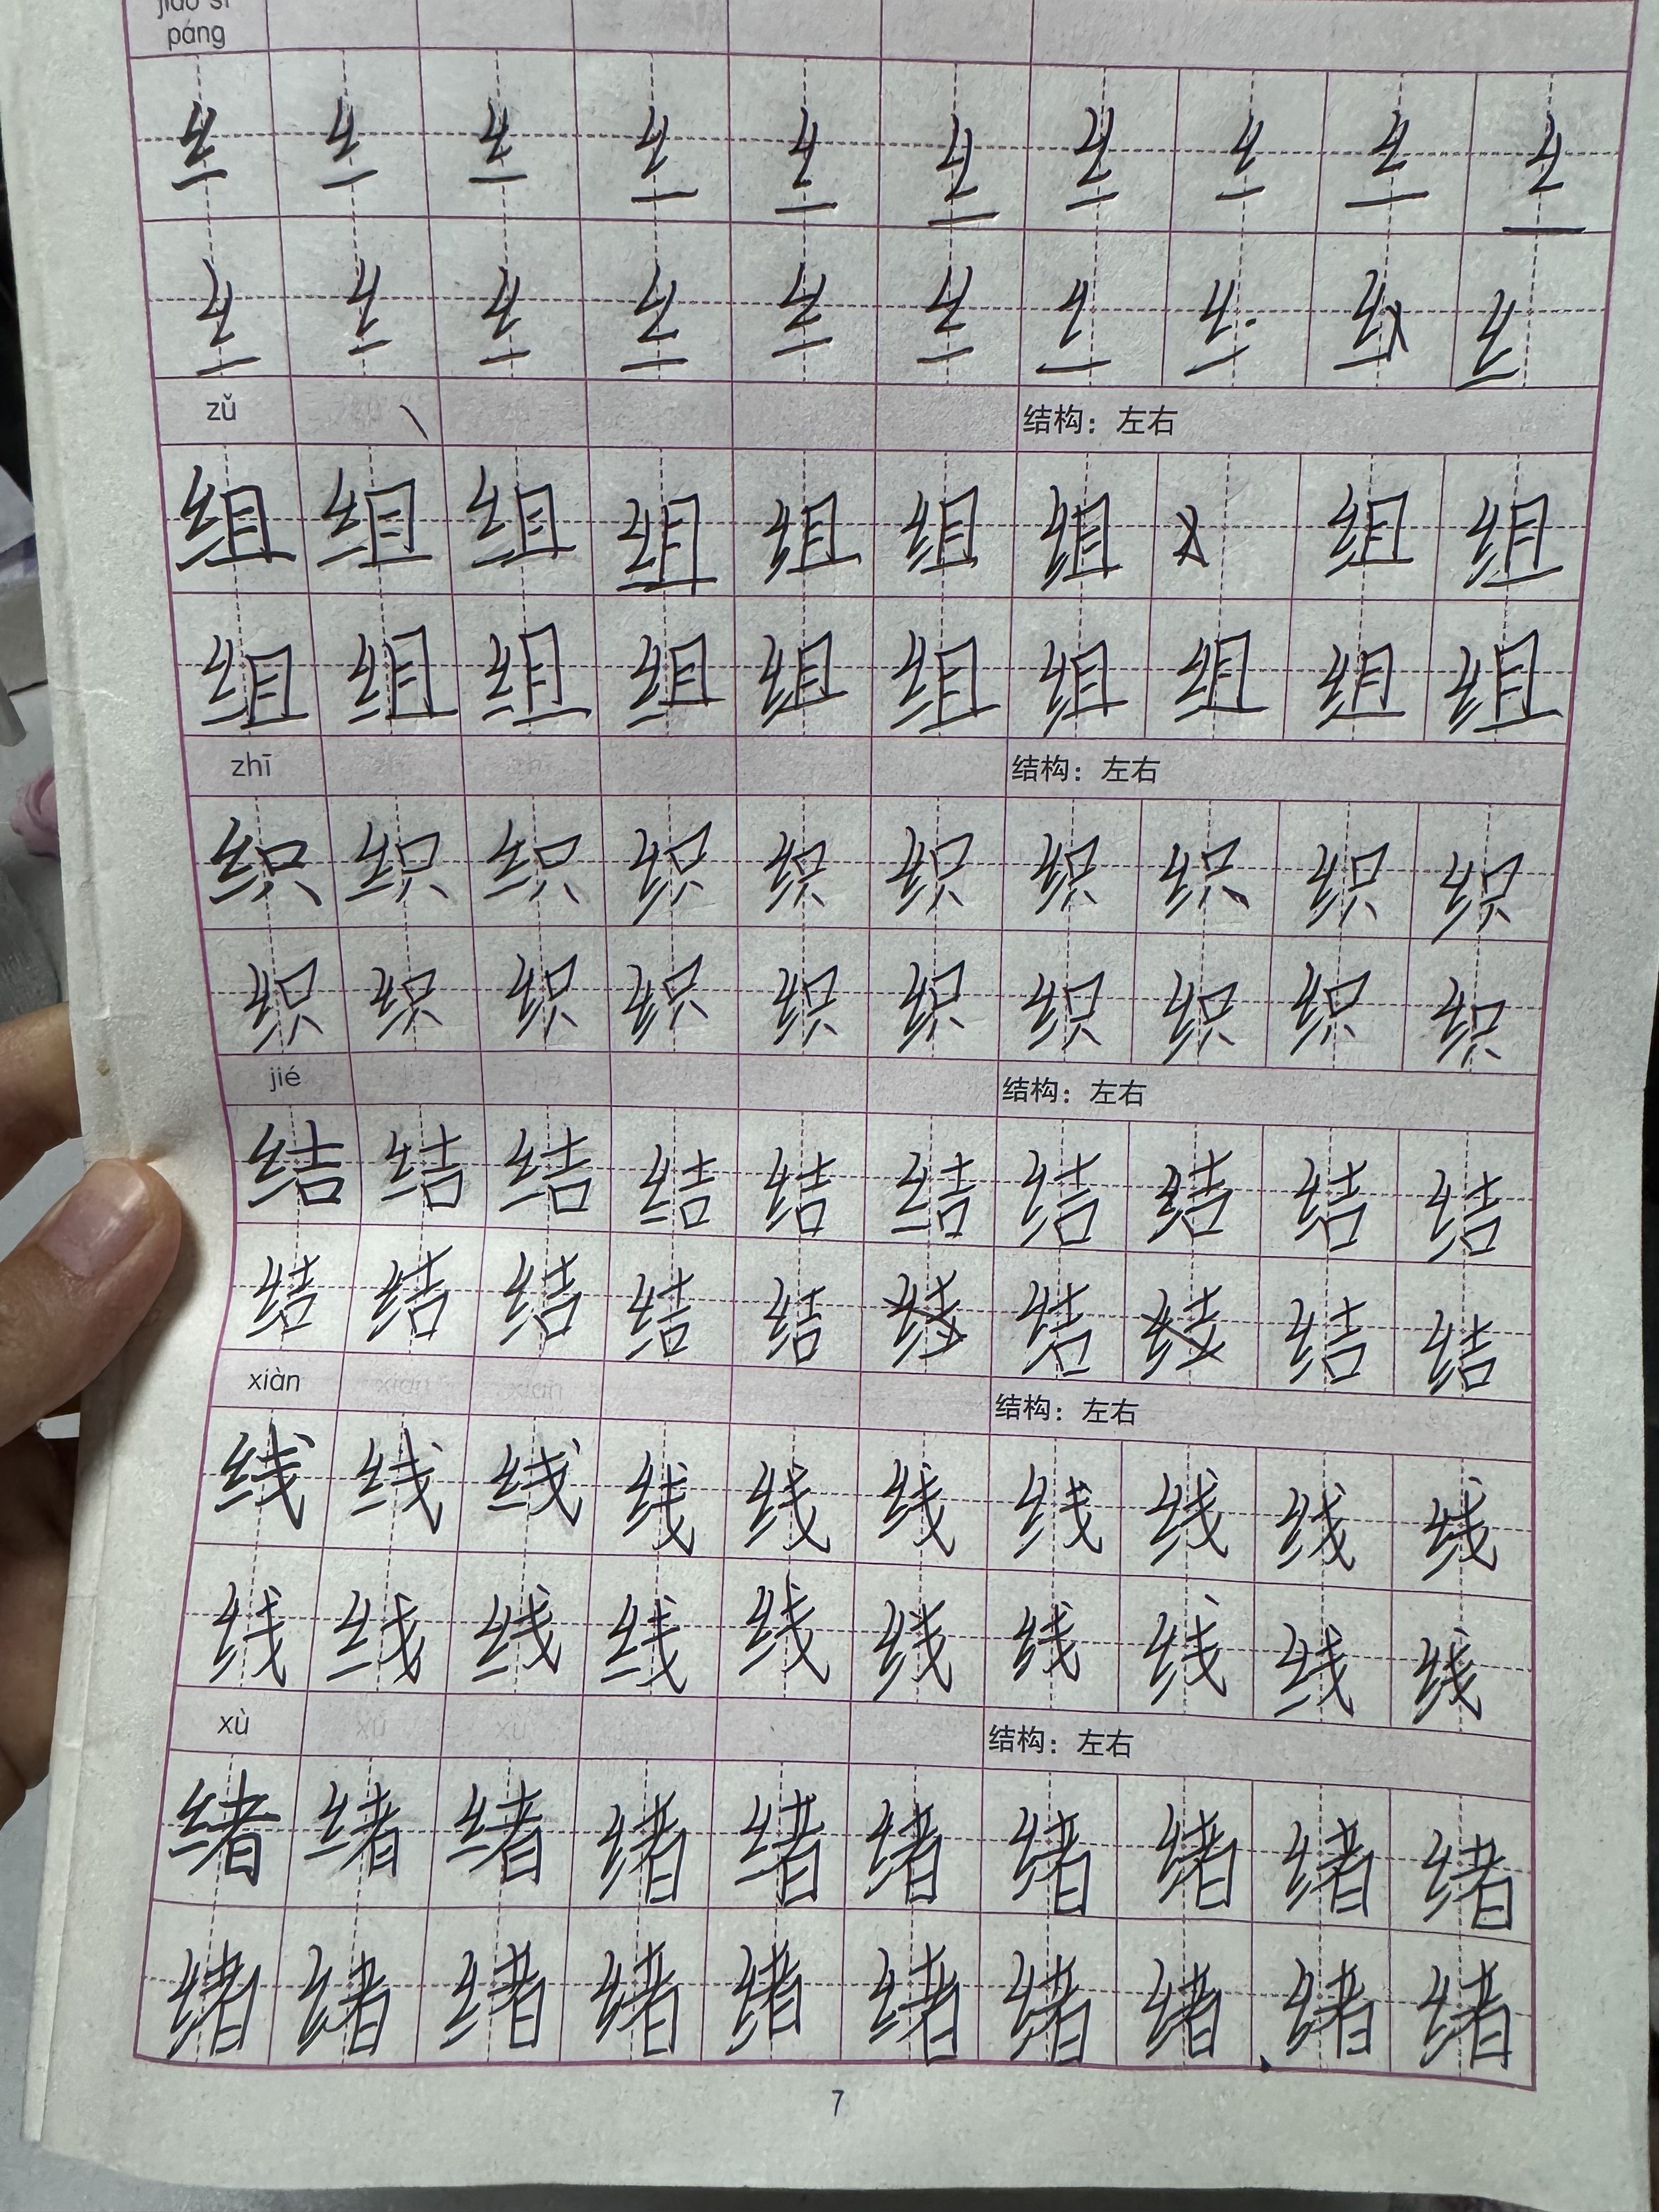 jiǎo sī
páng
纟 纟 纟 纟 纟 纟 纟 纟 纟 纟
纟 纟 纟 纟 纟 纟 纟 纟 纟 纟
zǔ 结构：左右
组 组 组 组 组 组 组 组 组
组 组 组 组 组 组 组 组 组 组
zhī 结构：左右
织 织 织 织 织 织 织 织 织 织
织 织 织 织 织 织 织 织 织 织
jié 结构：左右
结 结 结 结 结 结 结 结 结 结
结 结 结 结 结 结 结 结
xiàn xiàn xiàn 结构：左右
线 线 线 线 线 线 线 线 线 线
线 线 线 线 线 线 线 线 线 线
xù xù xù 结构：左右
绪 绪 绪 绪 绪 绪 绪 绪 绪 绪
绪 绪 绪 绪 绪 绪 绪 绪 绪 绪
7